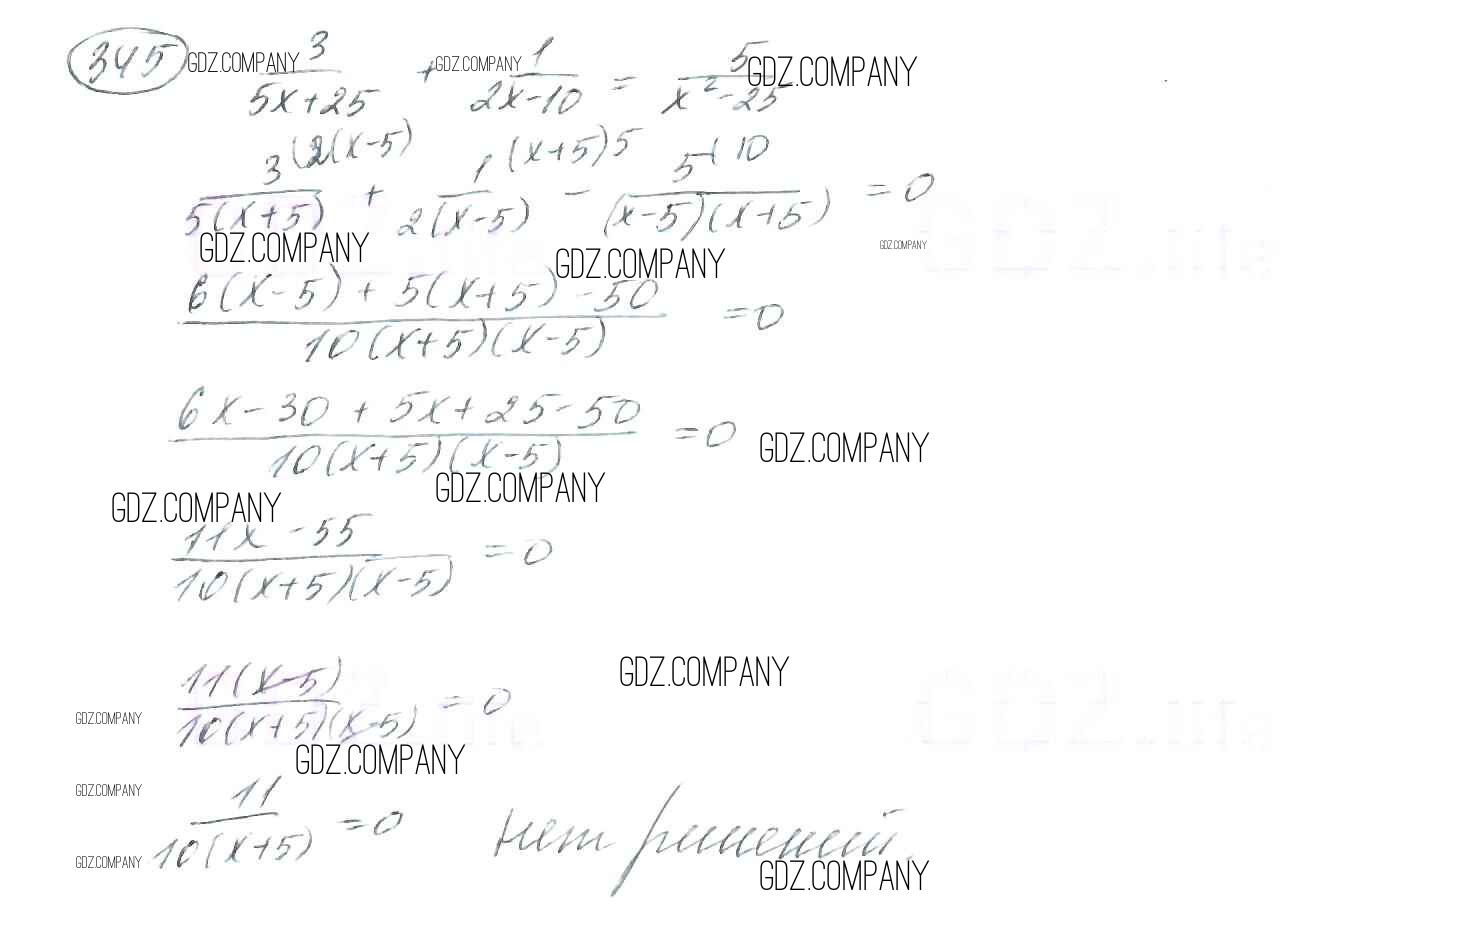 345 GDZ.COMPANY 3/(5x+25) + GDZ.COMPANY 1/(2x-10) = 5/(x²-25) GDZ.COMPANY
3(2(x-5)/(5(x+5)) + 1(x+5)5/(2(x-5)) - 5(10/((x-5)(x+5)) = 0
GDZ.COMPANY GDZ.COMPANY GDZ.COMPANY
(6(x-5) + 5(x+5) - 50)/(10(x+5)(x-5)) = 0
(6x - 30 + 5x + 25 - 50)/(10(x+5)(x-5)) = 0 GDZ.COMPANY
GDZ.COMPANY GDZ.COMPANY
(11x - 55)/(10(x+5)(x-5)) = 0
GDZ.COMPANY
11(x-5)/(10(x+5)(x-5)) = 0
GDZ.COMPANY
GDZ.COMPANY
GDZ.COMPANY
11/(10(x+5)) = 0 нет решений.
GDZ.COMPANY
GDZ.COMPANY